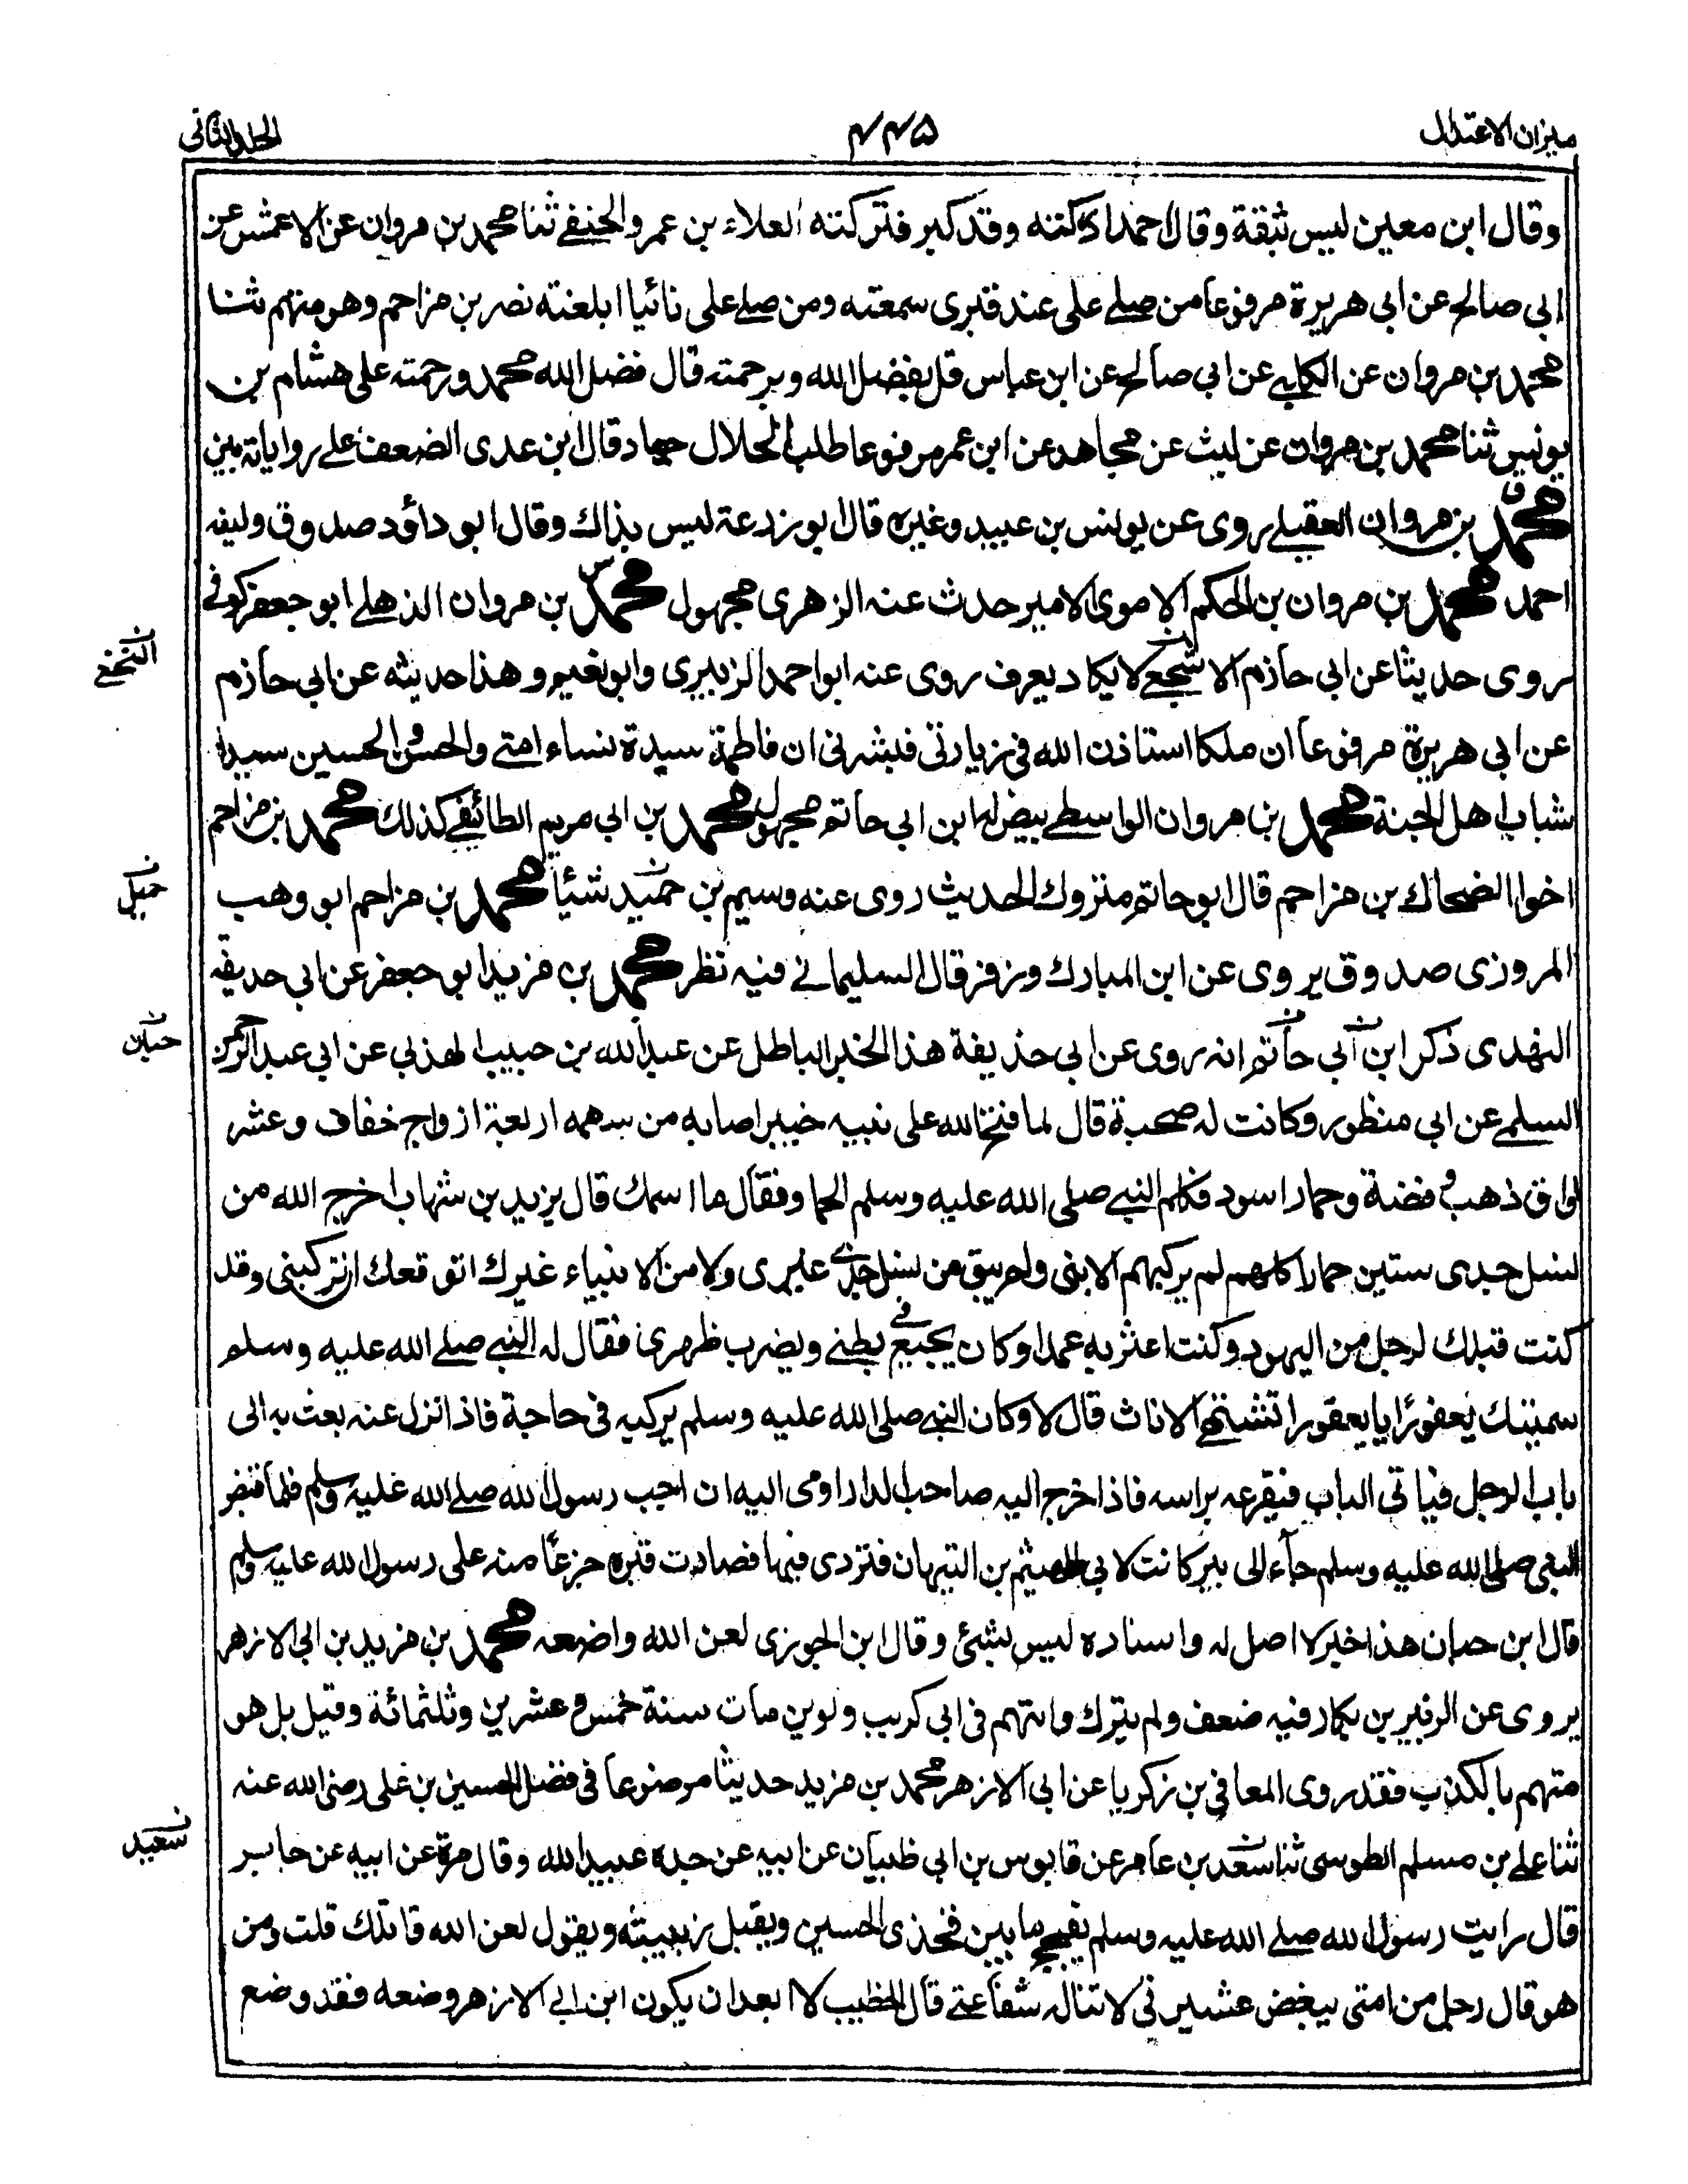 ميزان الاعتدال
۴۴۵
الجلد الثانى
وقال ابن معين ليس بثقة وقال احمد ادركته وقد كبر فتركته العلاء بن عمرو الحنفے ثنا محمد بن مروان عن الاعمش عن
ابى صالح عن ابى هريرة مرفوعا من صلے على عند قبرى سمعته ومن صلے على نائيا ابلغته نصر بن مزاحم وهو متهم ثنا
محمد بن مروان عن الكلبے عن ابى صالح عن ابن عباس قل بفضل الله وبرحمته قال فضل الله محمد ورحمته على هشام بن
يونس ثنا محمد بن مروان عن ليث عن مجاهد عن ابن عمر مرفوعا طلب الحلال جهاد قال ابن عدى الضعف علے رواياته بين
محمد بن مروان العقيلے روى عن يونس بن عبيد وغيره قال ابو زرعة ليس بذاك وقال ابو داؤد صدوق ولينه
احمد محمد بن مروان بن الحكم الاموى الامير حدث عنه الزهرى مجهول محمد بن مروان الذهلے ابو جعفر كوفے
روى حديثا عن ابى حازم الاشجعے لا يكاد يعرف روى عنه ابو احمد الزبيرى وابو نعيم وهذا حديثه عن ابى حازم
النخعے
عن ابى هريرة مرفوعا ان ملكا استاذن الله فى زيارتى فبشرنى ان فاطمة سيدة نساء امتے والحسن والحسين سيدا
شباب اهل الجنة محمد بن مروان الواسطے بيض له ابن ابى حاتم مجهول محمد بن ابى مريم الطائفے كذلك محمد بن مزاحم
اخو الضحاك بن مزاحم قال ابو حاتم متروك الحديث روى عنه وسيم بن حميد شيئا محمد بن مزاحم ابو وهب
جميل
المروزى صدوق يروى عن ابن المبارك وزفر قال السليمانے فيه نظر محمد بن مزيد ابو جعفر عن ابى حذيفة
النهدى ذكر ابن ابى حاتم انه روى عن ابى حذيفة هذا الخبر الباطل عن عبد الله بن حبيب الهذلى عن ابى عبد الرحمن
حبان
السلمے عن ابى منظور وكانت له صحبة قال لما فتح الله على نبيه خيبر اصابه من سهمه اربعة ازواج خفاف وعشر
اواق ذهب و فضة وحمار اسود فكلم النبے صلى الله عليه وسلم الحمار فقال ما اسمك قال يزيد بن شهاب اخرج الله من
نسل جدى ستين حمارا كلهم لم يركبهم الا نبى ولم يبق من نسل جدى غيرى ولا من الانبياء غيرك اتوقعك ان تركبنى وقد
كنت قبلك لرجل من اليهود وكنت اعثر به عمدا وكان يجيع بطنے ويضرب ظهرى فقال له النبے صلے الله عليه وسلم
سميتك يعفورا يا يعفور اتشتهے الاناث قال لا وكان النبے صلى الله عليه وسلم يركبه فى حاجة فاذا نزل عنه بعث به الى
باب الرجل فياتى الباب فيقرعه براسه فاذا خرج اليه صاحب الدار اومى اليه ان اجب رسول الله صلے الله عليه وسلم فلما قبض
النبى صلى الله عليه وسلم جآء الى بير كانت لابى الهيثم بن التيهان فتردى فيها فصارت قبره جزعا منه على رسول الله عليه وسلم
قال ابن حبان هذا خبر لا اصل له واسناده ليس بشئ وقال ابن الجوزى لعن الله واضعه محمد بن مزيد بن ابى الازهر
يروى عن الزبير بن بكار فيه ضعف ولم يترك واتهم فى ابى كريب ولوين مات سنة خمس و عشرين وثلثمائة وقيل بل هو
متهم بالكذب فقد روى المعافى بن زكريا عن ابى الازهر محمد بن مزيد حديثا موضوعا فى فضل الحسين بن على رضى الله عنه
ثنا علے بن مسلم الطوسى ثنا سعد بن عامر عن قابوس بن ابى ظبيان عن ابيه عن جده عبيد الله وقال مرة عن ابيه عن جابر
سعيد
قال رايت رسول الله صلے الله عليه وسلم يفحج ما بين فخذى الحسين ويقبل زبيبته ويقول لعن الله قاتلك قلت ومن
هو قال رجل من امتى يبغض عشيرتى لا تناله شفاعتے قال الخطيب لا ابعد ان يكون ابن ابى الازهر وضعه فقد وضع